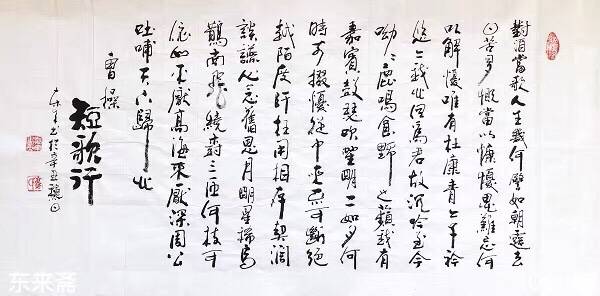 對酒當歌人生幾何譬如朝露去
日苦多慨當以慷憂思難忘何
以解憂唯有杜康青々子衿
悠々我心但為君故沉吟至今
呦々鹿鳴食野之蘋我有
嘉賓鼓瑟吹笙明々如月何
時可掇憂從中來不可斷絕
越陌度阡枉用相存契闊
談讌心念舊恩月明星稀烏
鵲南飛繞樹三匝何枝可
依山不厭高海不厭深周公
吐哺天下歸心
曹操
短歌行
书於辛丑
东来斋